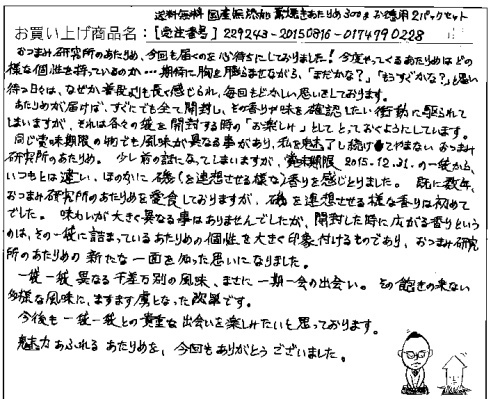 送料無料 国産無添加 素焼きあたりめ300g お徳用2パックセット
お買い上げ商品名：[受注番号] 229243-20150816-0174790228
おつまみ研究所のあたりめ、今回も届くのを心待ちにしておりました！今度やってくるあたりめはどの
様な個性を持っているのか…期待に胸を膨らませながら、「まだかな？」「もうすぐかな？」と思い
待つ日々は、なぜか普段よりも長く感じられ、毎回もどかしい思いをしております。
あたりめが届けば、すぐにでも全て開封し、その香りや味を確認したい衝動に駆られて
しまいますが、それは各々の袋を開封する時の「お楽しみ」としてとっておくようにしています。
同じ賞味期限の物でも風味が異なる事があり、私を魅了し続けてやまない おつまみ
研究所のあたりめ。少し前の話になってしまいますが、賞味期限 2015.12.31.の一袋から、
いつもとは違い、ほのかに磯（を連想させる様な）香りを感じとりました。既に数年、
おつまみ研究所のあたりめを愛食しておりますが、磯を連想させる様な香りは初めて
でした。味わいが大きく異なる事はありませんでしたが、開封した時に広がる香りという
のは、その一袋に詰まっているあたりめの個性を大きく印象付けるものであり、おつまみ研究
所のあたりめの新たな一面を知った思いになりました。
一袋一袋異なる千差万別の風味、まさに一期一会の出会い。その飽きの来ない
多様な風味に、ますます虜となった次第です。
今後も一袋一袋との貴重な出会いを楽しみたいと思っております。
魅力あふれるあたりめを、今回もありがとうございました。